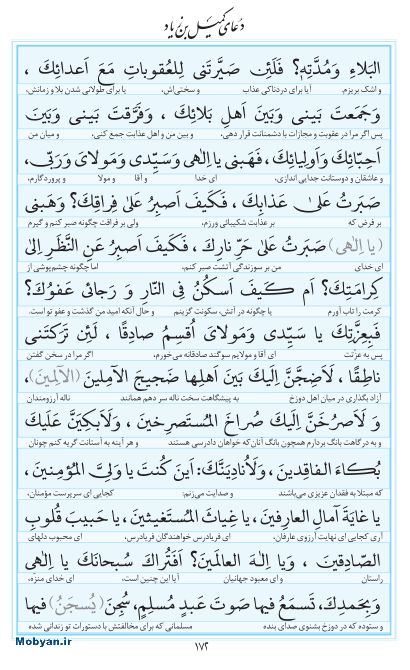 دعای کمیل بن زیاد
البَلاءِ وَمُدَّتِهِ؟ فَلَئِن صَيَّرتَنى لِلعُقوباتِ مَعَ اَعدائِكَ ،
و اشک بریزم. آیا برای دردناکی عذاب و سختی‌اش، یا برای طولانی شدن بلا و زمانش،
وَ جَمَعتَ بَينى وَبَينَ اَهلِ بَلائِكَ ، وَفَرَّقتَ بَينى وَبَينَ
پس اگر مرا در عقوبت و مجازات با دشمنانت قرار دهی، و بین من و اهل عذابت جمع کنی، و میان من
اَحِبّائِكَ وَاَولِيائِكَ ، فَهَبنى يا اِلٰهى وَسَيِّدى وَمَولاىَ وَرَبّى،
و عاشقان و دوستانت جدایی اندازی، ای خدا و آقا و مولا و پروردگارم،
صَبَرتُ عَلىٰ عَذابِكَ ، فَكَيفَ اَصبِرُ عَلىٰ فِراقِكَ؟ وَهَبنى
بر فرض که بر عذابت شکیبائی ورزم، ولی بر فراقت چگونه صبر کنم و گیرم
(يا اِلٰهى) صَبَرتُ عَلىٰ حَرِّ نارِكَ ، فَكَيفَ اَصبِرُ عَنِ النَّظَرِ اِلىٰ
ای خدای من بر سوزندگی آتشت صبر کنم، اما چگونه چشم‌پوشی از
كَرامَتِكَ؟ اَم كَيفَ اَسكُنُ فِى النّارِ وَ رَجائى عَفوُكَ؟
کرمت را تاب آورم یا چگونه در آتش، سکونت گزینم و حال آنکه امید من گذشت و عفو تو است.
فَبِعِزَّتِكَ يا سَيِّدى وَمَولاىَ اُقسِمُ صادِقًا ، لَئِن تَرَكتَنى
پس به عزتت ای آقا و مولایم سوگند صادقانه می‌خورم، اگر مرا در سخن گفتن
ناطِقًا ، لَاَضِجَّنَّ اِلَيكَ بَينَ اَهلِها ضَجيجَ الآمِلينَ (الآلِمينَ)،
آزاد بگذاری در میان اهل دوزخ به پیشگاهت سخت ناله سر دهم همانند ناله آرزومندان
وَ لَاَصرُخَنَّ اِلَيكَ صُراخَ المُستَصرِخينَ ، وَلَاَبكِيَنَّ عَلَيكَ
و به درگاهت بانگ بردارم همچون بانگ آنان‌که خواهان دادرسی هستند و هر آینه به آستانت گریه کنم چونان
بُكاءَ الفاقِدينَ ، وَلَاُنادِيَنَّكَ: اَينَ كُنتَ يا وَلِىَّ المُؤمِنينَ،
که مبتلا به فقدان عزیزی می‌باشند و صدایت می‌زنم: کجایی ای سرپرست مؤمنان،
يا غايَةَ آمالِ العارِفينَ، يا غِياثَ المُستَغيثينَ، يا حَبيبَ قُلوبِ
آری کجایی ای نهایت آرزوی عارفان، ای فریادرس خواهندگان فریادرس، ای محبوب دلهای
الصّادِقينَ ، وَيا اِلٰهَ العالَمينَ؟ اَفَتُراكَ سُبحانَكَ يا اِلٰهى
راستان و ای معبود جهانیان آیا این چنین است، ای خدای منزه،
وَبِحَمدِكَ، تَسمَعُ فيها صَوتَ عَبدٍ مُسلِمٍ، سُجِنَ (يُسجَنُ) فيها
و ستوده که در دوزخ بشنوی صدای بنده مسلمانی که برای مخالفتش با دستورات تو زندانی شده
۱۷۲
Mobyan.ir